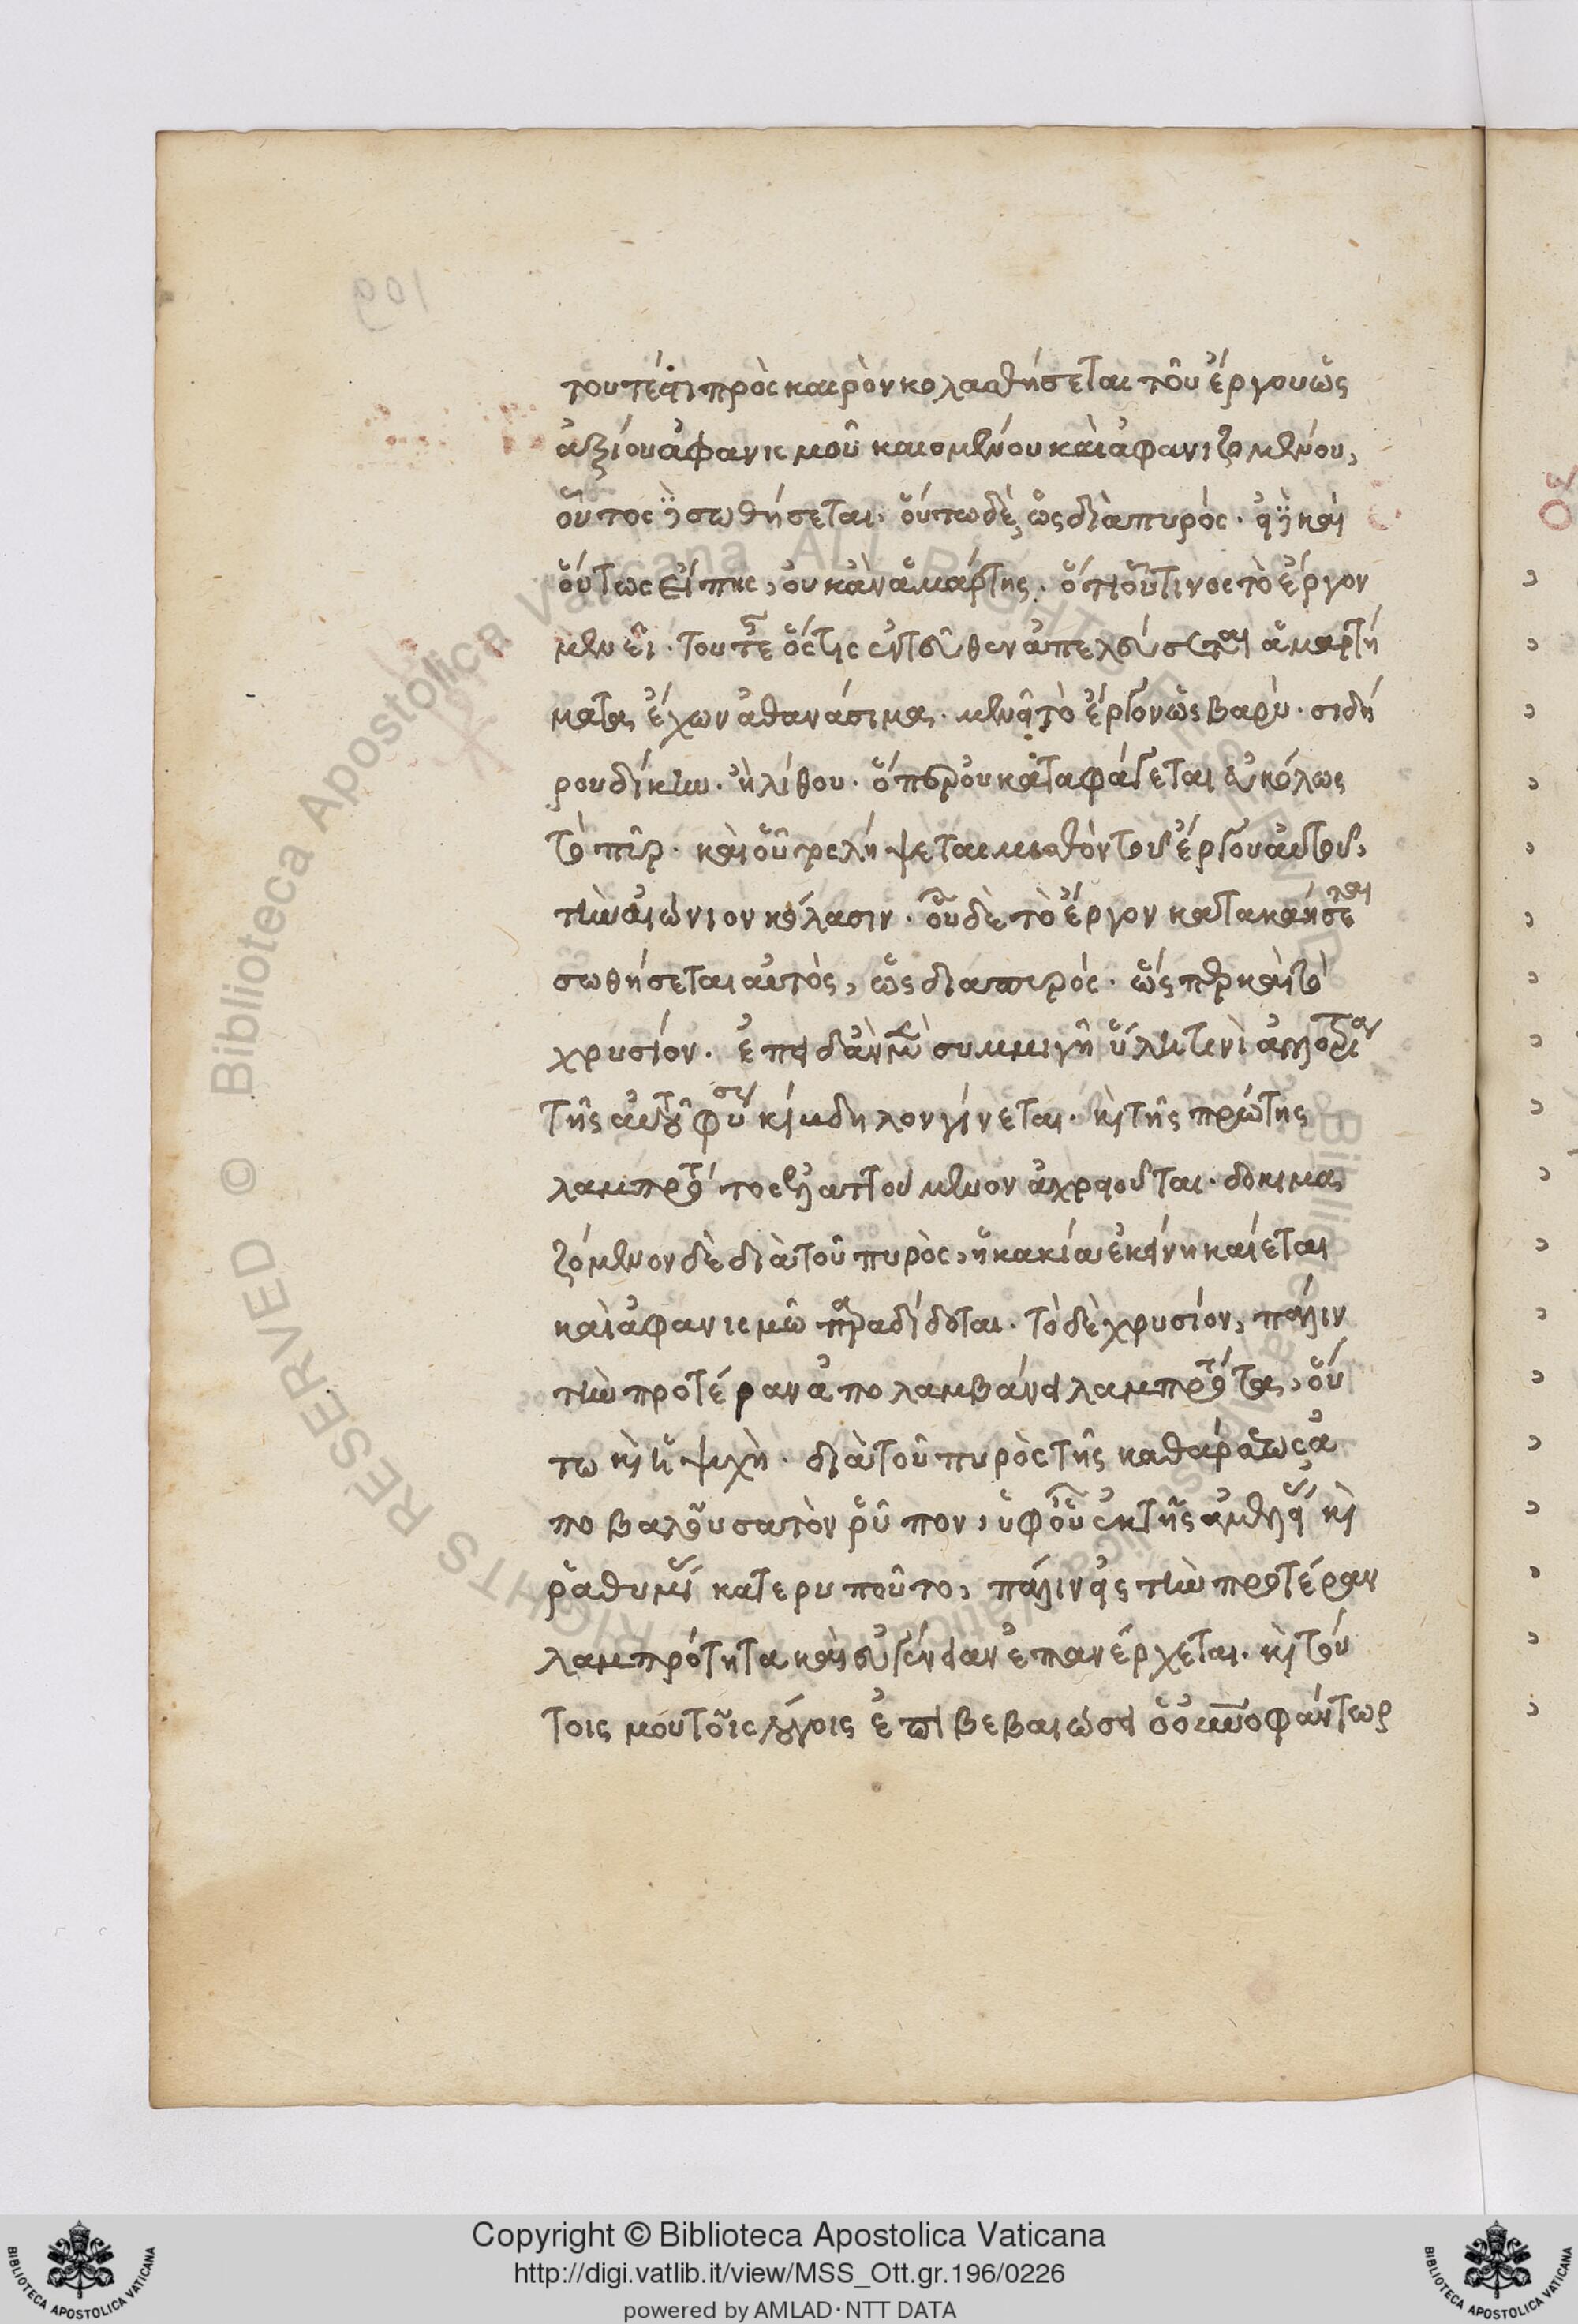 τουτέστι πρὸς καιρὸν κολασθήσεται τοῦ ἔργου ὡς
ἀξίου ἀφανισμοῦ καιομένου καὶ ἀφανιζομένου,
οὗτος σωθήσεται, οὕτω δὲ, ὡς διὰ πυρός. εἰ καὶ
οὕτως εἴπῃς, οὐκ ἂν ἁμάρτῃς. ὅτι οὕτινος τὸ ἔργον
μένει. τουτέστι ὅστις ἐντεῦθεν ἀπελεύσεται ἁμαρτή
ματα ἔχων θανάσιμα. μένει τὸ ἔργον ὡς βαρὺ. σιδή
ρου δίκην. ἢ λίθου. ὅπερ οὐ καταφάγεται εὐκόλως
τὸ πῦρ. καὶ οὗτος λήψεται μισθὸν τοῦ ἔργου αὐτοῦ,
τὴν αἰώνιον κόλασιν. οὗ δὲ τὸ ἔργον κατακαήσεται
σωθήσεται αὐτὸς, ὡς διὰ πυρός. ὥσπερ καὶ τὸ
χρυσίον. ἐπειδὰν συμμιγῇ ὕλῃ τινὶ ἀλλοτρίᾳ
τῆς αὐτοῦ φύσεως κίβδηλον γίνεται. καὶ τῆς πρώτης
λαμπρότητος ἐλαττούμενον ἀχρειοῦται. δοκιμα
ζόμενον δὲ διὰ τοῦ πυρὸς, ἡ κακία ἐκείνη καίεται
καὶ ἀφανισμῷ παραδίδοται. τὸ δὲ χρυσίον, πάλιν
τὴν προτέραν ἀπολαμβάνει λαμπρότητα, οὕ
τω καὶ ἡ ψυχὴ. διὰ τοῦ πυρὸς τῆς καθάρσεως ἀ
ποβαλοῦσα τὸν ῥύπον, ὑφ' οὗ ἐκ τῆς ἀμελείας καὶ
ῥαθυμίας κατερυποῦτο, πάλιν εἰς τὴν προτέραν
λαμπρότητα καὶ εὐγένειαν ἐπανέρχεται. καὶ τού
τοις μου τοῖς λόγοις ἐπιβεβαιώσει ὁ οὐρανοφάντωρ
109
Copyright © Biblioteca Apostolica Vaticana
http://digi.vatlib.it/view/MSS_Ott.gr.196/0226
powered by AMLAD·NTT DATA